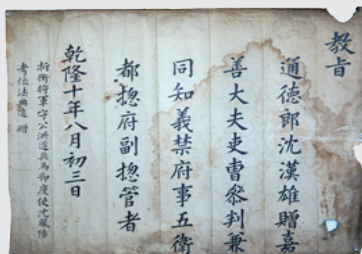 教旨
通德郎沈漢雄贈嘉
善大夫吏曹叅判兼
同知義禁府事五衛
都摠府副摠管者
乾隆十年八月初三日
折衝將軍守公洪道兵馬節度使沈鳳陽
考依法典追贈